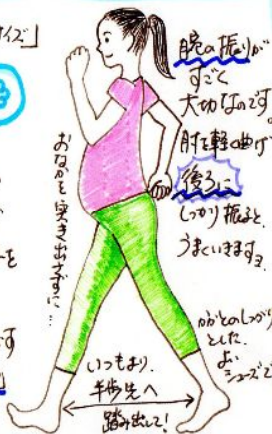 イズ」
腕の振りが
すごく
大切なのです。
肘を軽く曲げ
後ろに
しっかり振ると、
うまくいきますヨ。
おなかを突き出さずに…
を
す
かかとのしっかり
とした、
よい
シューズで
いつもより、
半歩先へ
踏み出して!